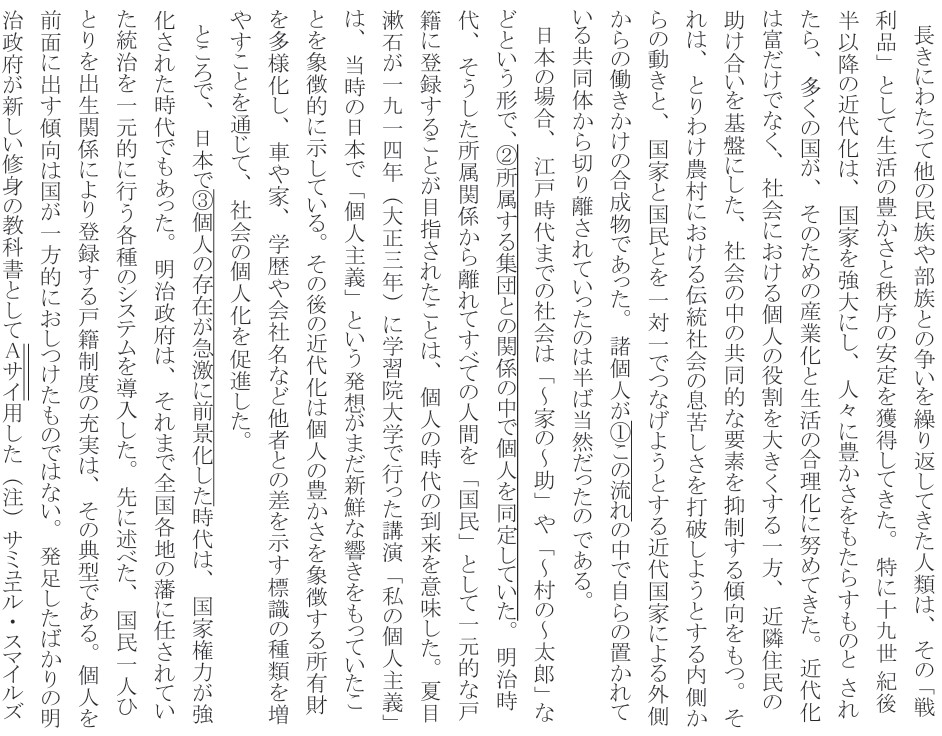 長きにわたって他の民族や部族との争いを繰り返してきた人類は、その「戦
利品」として生活の豊かさと秩序の安定を獲得してきた。特に十九世紀後
半以降の近代化は、国家を強大にし、人々に豊かさをもたらすものとされ
たら、多くの国が、そのための産業化と生活の合理化に努めてきた。近代化
は富だけでなく、社会における個人の役割を大きくする一方、近隣住民の
助け合いを基盤にした、社会の中の共同的な要素を抑制する傾向をもつ。そ
れは、とりわけ農村における伝統社会の息苦しさを打破しようとする内側か
らの動きと、国家と国民とを一対一でつなげようとする近代国家による外側
からの働きかけの合成物であった。諸個人が①この流れの中で自らの置かれて
いる共同体から切り離されていったのは半ば当然だったのである。
　日本の場合、江戸時代までの社会は「～家の～助」や「～村の～太郎」な
どという形で、②所属する集団との関係の中で個人を同定していた。明治時
代、そうした所属関係から離れてすべての人間を「国民」として一元的な戸
籍に登録することが目指されたことは、個人の時代の到来を意味した。夏目
漱石が一九一四年（大正三年）に学習院大学で行った講演「私の個人主義」
は、当時の日本で「個人主義」という発想がまだ新鮮な響きをもっていたこ
とを象徴的に示している。その後の近代化は個人の豊かさを象徴する所有財
を多様化し、車や家、学歴や会社名など他者との差を示す標識の種類を増
やすことを通じて、社会の個人化を促進した。
　ところで、日本で③個人の存在が急激に前景化した時代は、国家権力が強
化された時代でもあった。明治政府は、それまで全国各地の藩に任されてい
た統治を一元的に行う各種のシステムを導入した。先に述べた、国民一人ひ
とりを出生関係により登録する戸籍制度の充実は、その典型である。個人を
前面に出す傾向は国が一方的におしつけたものではない。発足したばかりの明
治政府が新しい修身の教科書としてAサイ用した（注）サミュエル・スマイルズ